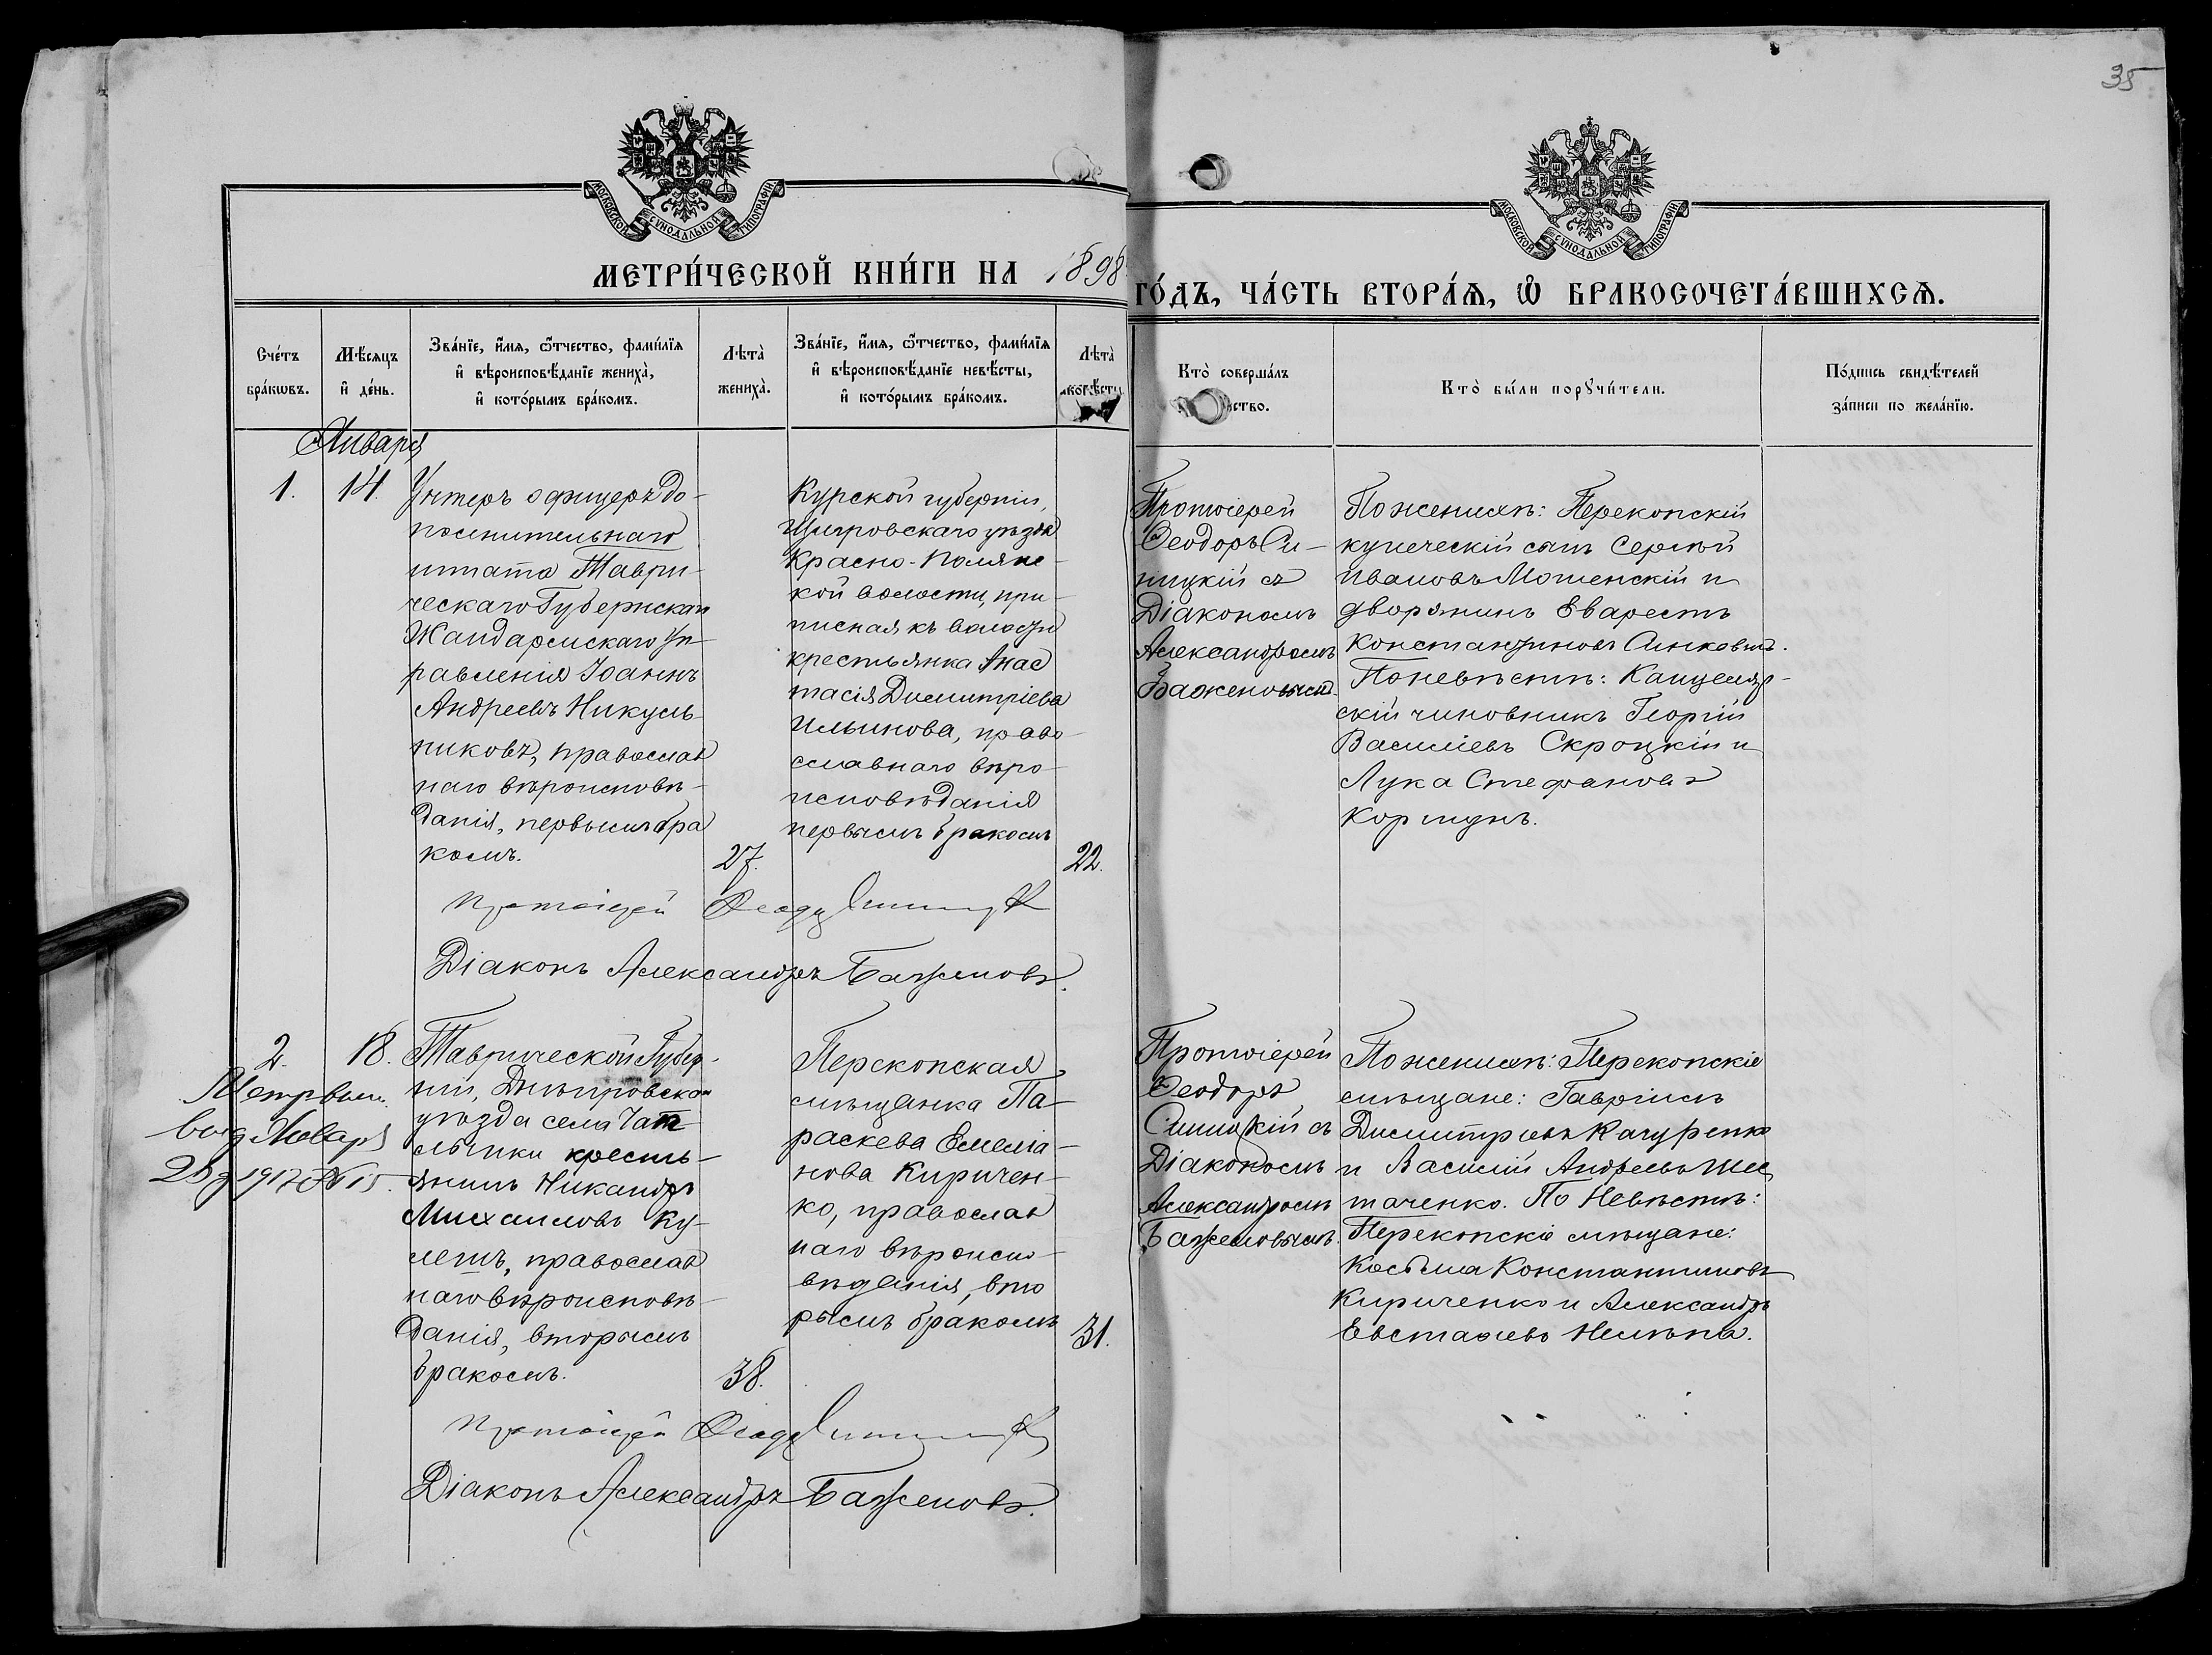 35
МОСКОВСКОЙ СѴНОДАЛЬНОЙ ТИПОГРАФІИ
МОСКОВСКОЙ СѴНОДАЛЬНОЙ ТИПОГРАФІИ
МЕТРИ́ЧЕСКОЙ КНИ́ГИ НА 1898
ГО́ДЪ, ЧА́СТЬ ВТОРА́Ѧ, Ѽ БРАКОСОЧЕТА́ВШИХСѦ.
Сче́тъ
бра́кѡвъ.
Мѣ́сяцъ
и҆ де́нь.
Зва́нїе, и҆́мѧ, ѻ҆́тчество, фами́лїѧ
и҆ вѣроисповѣ́данїе жениха̀,
и҆ кото́рымъ бра́комъ.
Лѣта̀
жениха̀.
Зва́нїе, и҆́мѧ, ѻ҆́тчество, фами́лїѧ
и҆ вѣроисповѣ́данїе невѣ́сты,
и҆ кото́рымъ бра́комъ.
Лѣта̀
Кто̀ соверша́лъ
ство.
Кто̀ бы́ли порꙋчи́тели.
По́дпись свидѣ́телей
за́писи по жела́нїю.
Января
1.
14.
Унтеръ офицеръ до-
полнительнаго
штата Таври-
ческаго Губернскаго
Жандармскаго Уп-
равленія Іоаннъ
Андреевъ Никуль-
никовъ, православ
наго вѣроисповѣ-
данія, первымъ бра
комъ.
27.
Курской губерніи,
Щигровскаго уѣзда
Красно-Полянс-
кой волости, при-
писная къ волости
крестьянка Анас
тасія Димитріева
Ильинова, право-
славнаго вѣро-
исповѣданія
первымъ бракомъ
22.
Протоіерей
Ѳеодоръ Си-
ницкій съ
Діакономъ
Александромъ
Баженовымъ.
По женихѣ: Перекопскій
купеческій сынъ Сергѣй
Ивановъ Мошенскій и
дворянинъ Еварестъ
Константиновъ Синкевичъ.
По невѣстѣ: Канцеляр-
скій чиновникъ Георгій
Василіевъ Скроцкій и
Лука Стефановъ
Коршунъ.
Протоіерей Ѳеодоръ Синицкій
Діаконъ Александръ Баженовъ.
2.
18.
Метр вып.
выд Января
28 д 1917 № 15.
Таврической Губер-
ніи, Днѣпровскаго
уѣзда села Чап-
лынки кресть-
янинъ Никандръ
Михаиловъ Ку-
лешъ, православ
наго вѣроисповѣ-
данія, вторымъ
бракомъ.
38.
Перекопская
мѣщанка Па-
раскева Емеліа-
нова Киричен-
ко, православ
наго вѣроиспо-
вѣданія, вто
рымъ бракомъ
31.
Протоіерей
Ѳеодоръ
Синицкій съ
Діакономъ
Александромъ
Баженовымъ.
По женихѣ: Перекопскіе
мѣщане: Гавріилъ
Димитріевъ Качуренко
и Василій Андреевъ Шес
таченко. По Невѣстѣ:
Перекопскіе мѣщане:
Косьма Константиновъ
Кириченко и Александръ
Евстафіевъ
Протоіерей Ѳеодоръ Синицкій
Діаконъ Александръ Баженовъ.